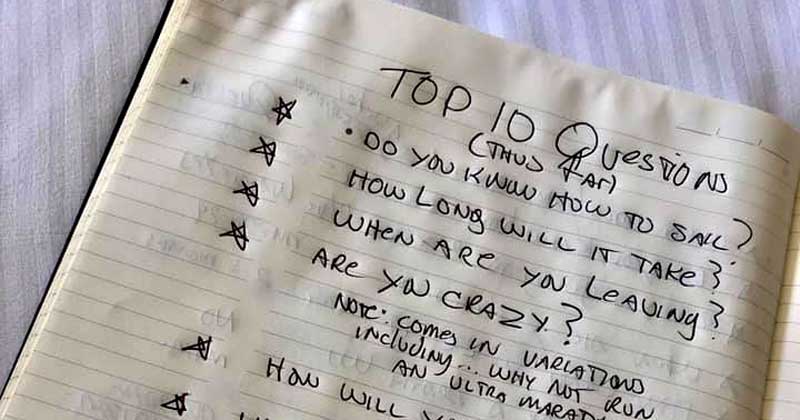 TOP 10 Questions
(THUS FAR)
• DO YOU KNOW HOW TO SAIL?
HOW LONG WILL IT TAKE?
WHEN ARE YOU LEAVING?
ARE YOU CRAZY?
NOTE: COMES IN VARIATIONS
INCLUDING... WHY NOT RUN
AN ULTRA
HOW WILL